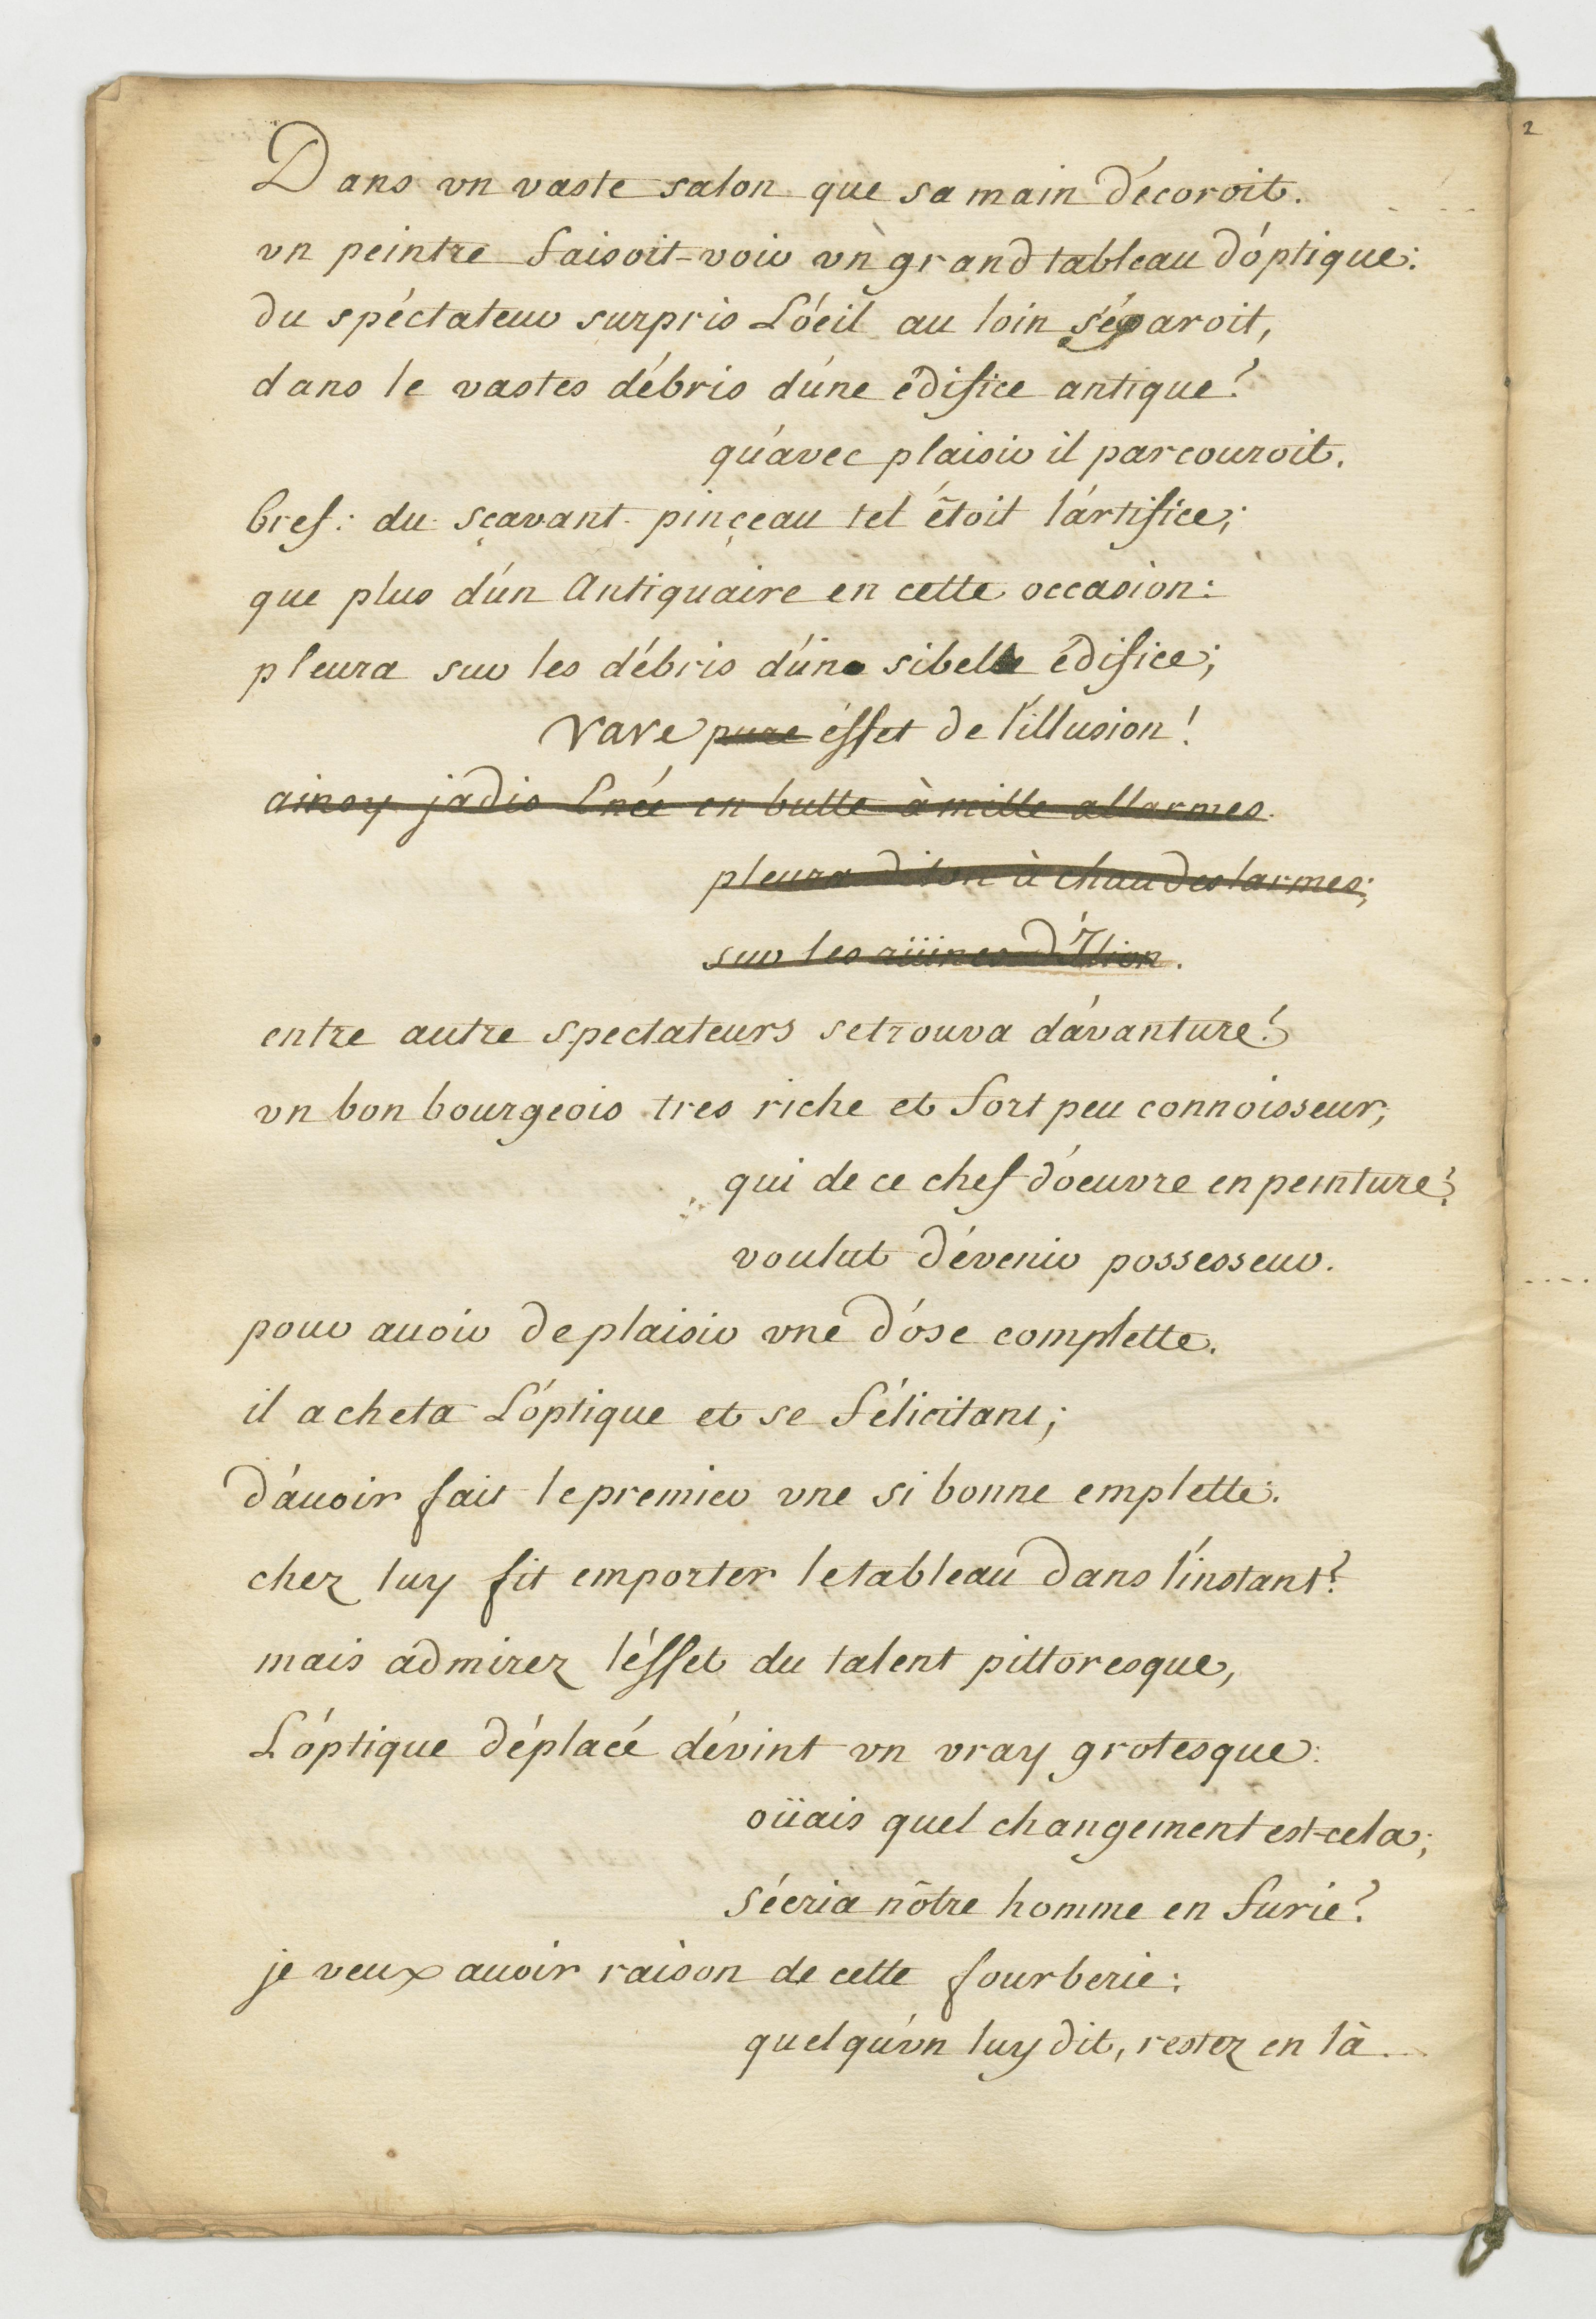 2
Dans vn vaste salon que sa main décoroit.
vn peintre faisoit-voir vn grand tableau d'óptique:
du spéctateur surpris L'óeil au loin s'égaroit,
dans le vastes débris d'úne édifice antique?
qu'avec plaisir il parcouroit.
bref: du sçavant pinçeau tel étoit l'ártifice;
que plus d'ún Antiquaire en cette occasion:
pleura sur les débris d'úne sibelle édifice;
rare pure éffet de l'illusion!
ainsy jadis Enée en butte à mille allarmes.
pleura diton à chaudes larmes;
sur les rüines d'Ilion.
entre autre spectateurs setrouva d'ávanture?
vn bon bourgeois tres riche et fort peu connoisseur;
qui de ce chef d'óeuvre en peinture?
voulut dévenir possesseur.
pour auoir de plaisir vne dóse complette.
il acheta L'óptique et se félicitant;
d'áuoir fait le premier vne si bonne emplette:
chez luy fit emporter le tableau dans l'ínstant?
mais admirez l'éffet du talent pittoresque,
L'óptique déplacé dévint vn vray grotesque:
oüais quel changement est-cela;
s'écria nôtre homme en furie?
je veux auoir raison de cette fourberie:
quelqu'vn luy dit, restez en là.